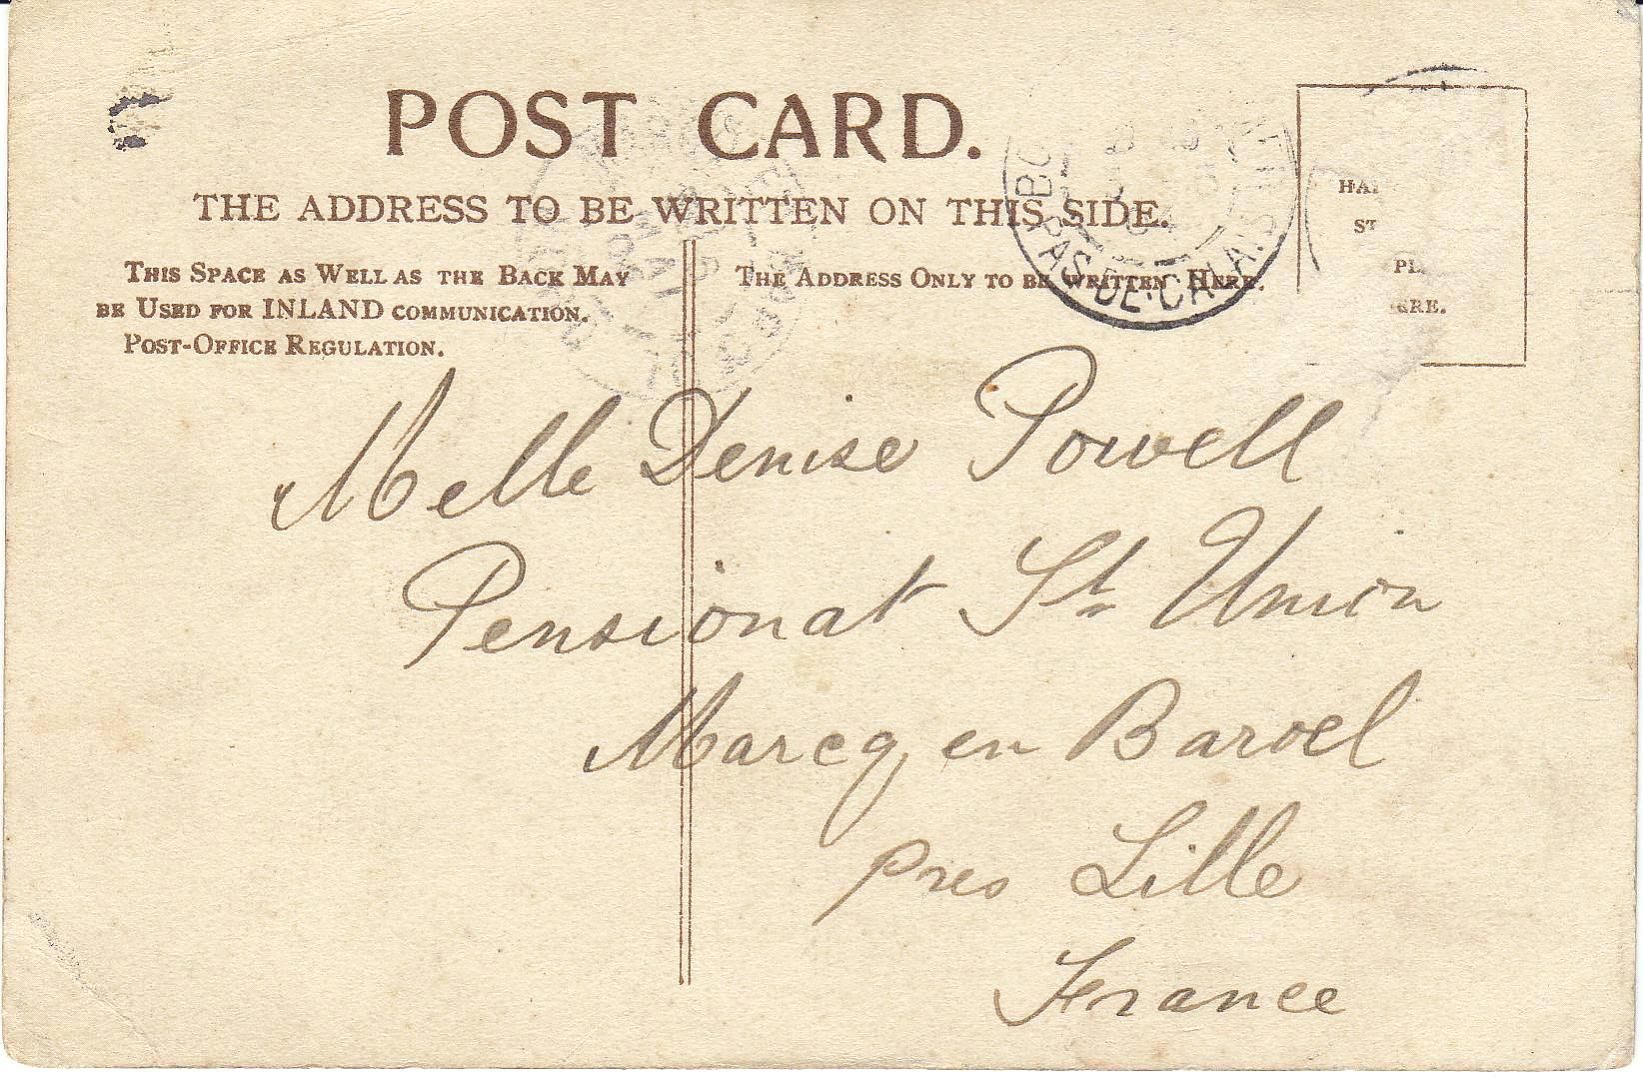 POST CARD.
THE ADDRESS TO BE WRITTEN ON THIS SIDE.
THIS SPACE AS WELL AS THE BACK MAY
BE USED FOR INLAND COMMUNICATION.
POST-OFFICE REGULATION.
THE ADDRESS ONLY TO BE WRITTEN HERE.
PAS-DE-CALAIS
Melle Denise Powell
Pensionat St Union
Marcq en Baroel
pres Lille
France